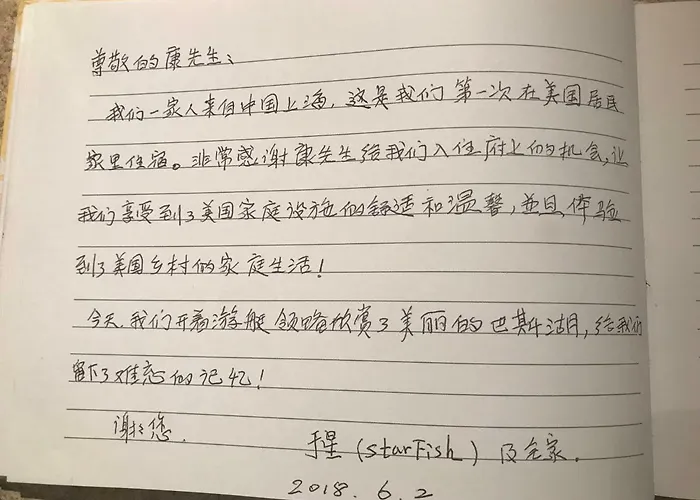 尊敬的康先生：
我们一家人来自中国上海，这是我们第一次在美国居民
家里住宿。非常感谢康先生给我们入住府上的机会，让
我们享受到了美国家庭设施的舒适和温馨，并且体验
到了美国乡村的家庭生活！
今天，我们开着游艇领略欣赏了美丽的巴斯湖，给我们
留下了难忘的记忆！
谢谢您．
星（starFish）及全家．
2018．6．2